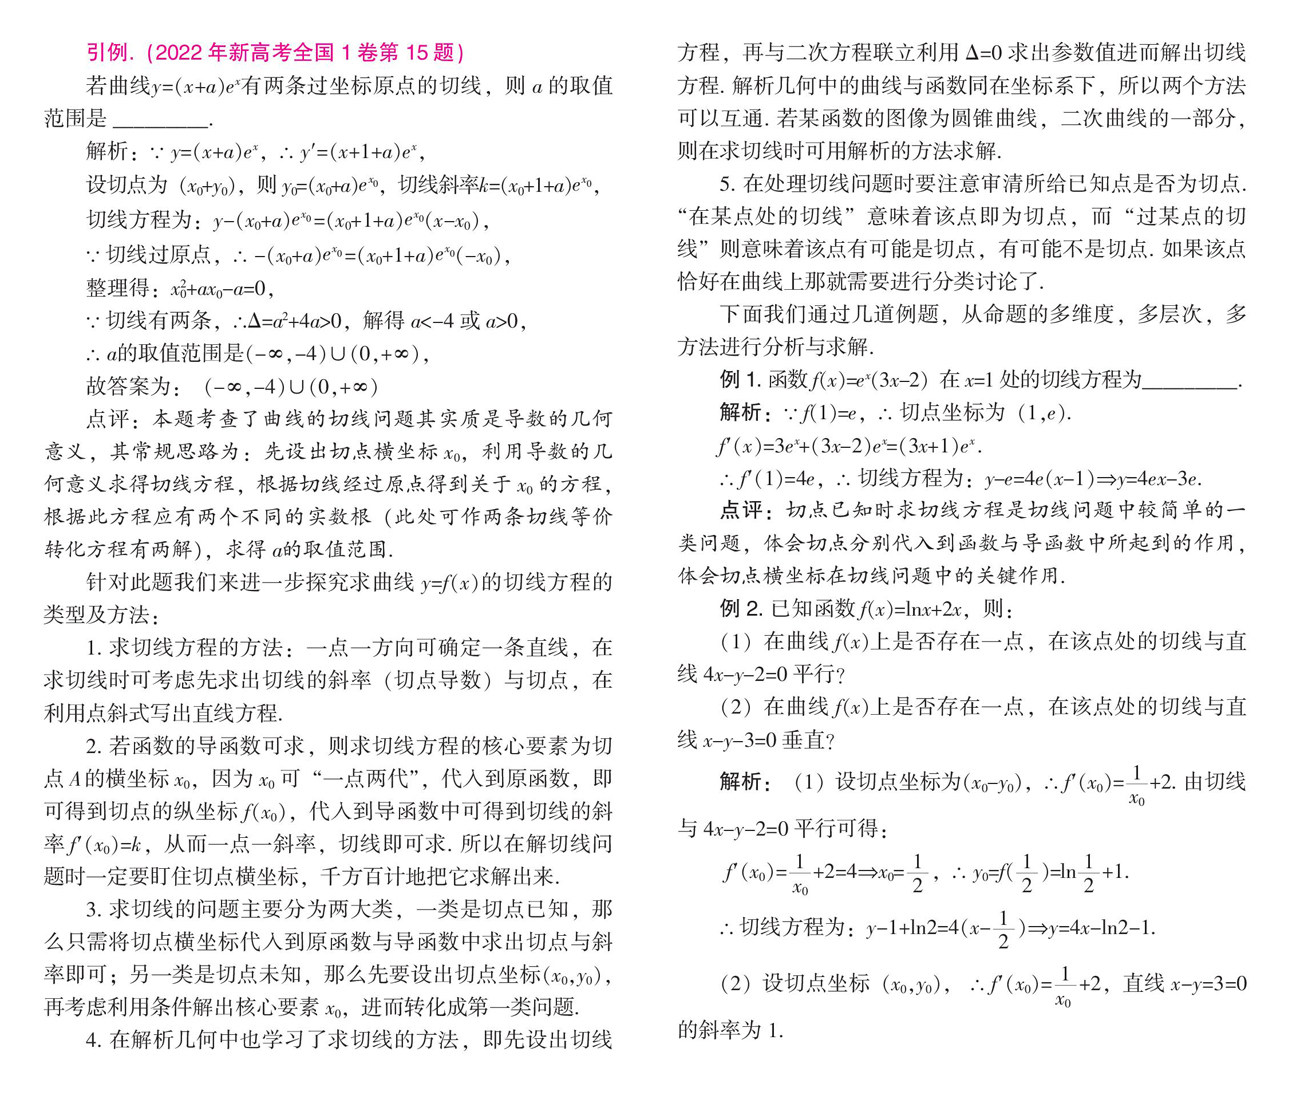 引例. (2022 年新高考全国 1 卷第 15 题)
若曲线y=(x+a)eˣ有两条过坐标原点的切线，则 a 的取值
范围是 ________.
解析：∵ y=(x+a)eˣ，∴ y′=(x+1+a)eˣ，
设切点为 (x₀+y₀)，则 y₀=(x₀+a)e^x₀，切线斜率k=(x₀+1+a)e^x₀，
切线方程为：y-(x₀+a)e^x₀=(x₀+1+a)e^x₀(x-x₀)，
∵ 切线过原点，∴ -(x₀+a)e^x₀=(x₀+1+a)e^x₀(-x₀)，
整理得：x₀²+ax₀-a=0，
∵ 切线有两条，∴Δ=a²+4a>0，解得 a<-4 或 a>0，
∴ a的取值范围是(-∞,-4)∪(0,+∞)，
故答案为： (-∞,-4)∪(0,+∞)
点评：本题考查了曲线的切线问题其实质是导数的几何
意义，其常规思路为：先设出切点横坐标 x₀，利用导数的几
何意义求得切线方程，根据切线经过原点得到关于 x₀ 的方程，
根据此方程应有两个不同的实数根（此处可作两条切线等价
转化方程有两解），求得 a的取值范围.
针对此题我们来进一步探究求曲线 y=f(x)的切线方程的
类型及方法：
1. 求切线方程的方法：一点一方向可确定一条直线，在
求切线时可考虑先求出切线的斜率（切点导数）与切点，在
利用点斜式写出直线方程.
2. 若函数的导函数可求，则求切线方程的核心要素为切
点 A的横坐标 x₀，因为 x₀ 可“一点两代”，代入到原函数，即
可得到切点的纵坐标 f(x₀)，代入到导函数中可得到切线的斜
率 f′(x₀)=k，从而一点一斜率，切线即可求. 所以在解切线问
题时一定要盯住切点横坐标，千方百计地把它求解出来.
3. 求切线的问题主要分为两大类，一类是切点已知，那
么只需将切点横坐标代入到原函数与导函数中求出切点与斜
率即可；另一类是切点未知，那么先要设出切点坐标(x₀,y₀)，
再考虑利用条件解出核心要素 x₀，进而转化成第一类问题.
4. 在解析几何中也学习了求切线的方法，即先设出切线
方程，再与二次方程联立利用 Δ=0 求出参数值进而解出切线
方程. 解析几何中的曲线与函数同在坐标系下，所以两个方法
可以互通. 若某函数的图像为圆锥曲线，二次曲线的一部分，
则在求切线时可用解析的方法求解.
5. 在处理切线问题时要注意审清所给已知点是否为切点.
“在某点处的切线”意味着该点即为切点，而“过某点的切
线”则意味着该点有可能是切点，有可能不是切点. 如果该点
恰好在曲线上那就需要进行分类讨论了.
下面我们通过几道例题，从命题的多维度，多层次，多
方法进行分析与求解.
例 1. 函数 f(x)=eˣ(3x-2) 在 x=1 处的切线方程为________.
解析：∵ f(1)=e，∴ 切点坐标为 (1,e).
f′(x)=3eˣ+(3x-2)eˣ=(3x+1)eˣ.
∴ f′(1)=4e，∴ 切线方程为：y-e=4e(x-1)⇒y=4ex-3e.
点评：切点已知时求切线方程是切线问题中较简单的一
类问题，体会切点分别代入到函数与导函数中所起到的作用，
体会切点横坐标在切线问题中的关键作用.
例 2. 已知函数 f(x)=lnx+2x，则：
（1）在曲线 f(x)上是否存在一点，在该点处的切线与直
线 4x-y-2=0 平行？
（2）在曲线 f(x)上是否存在一点，在该点处的切线与直
线 x-y-3=0 垂直？
解析：（1）设切点坐标为(x₀-y₀)，∴ f′(x₀)=1/x₀+2. 由切线
与 4x-y-2=0 平行可得：
f′(x₀)=1/x₀+2=4⇒x₀=1/2，∴ y₀=f(1/2)=ln1/2+1.
∴ 切线方程为：y-1+ln2=4(x-1/2)⇒y=4x-ln2-1.
（2）设切点坐标 (x₀,y₀)，∴ f′(x₀)=1/x₀+2，直线 x-y=3=0
的斜率为 1.